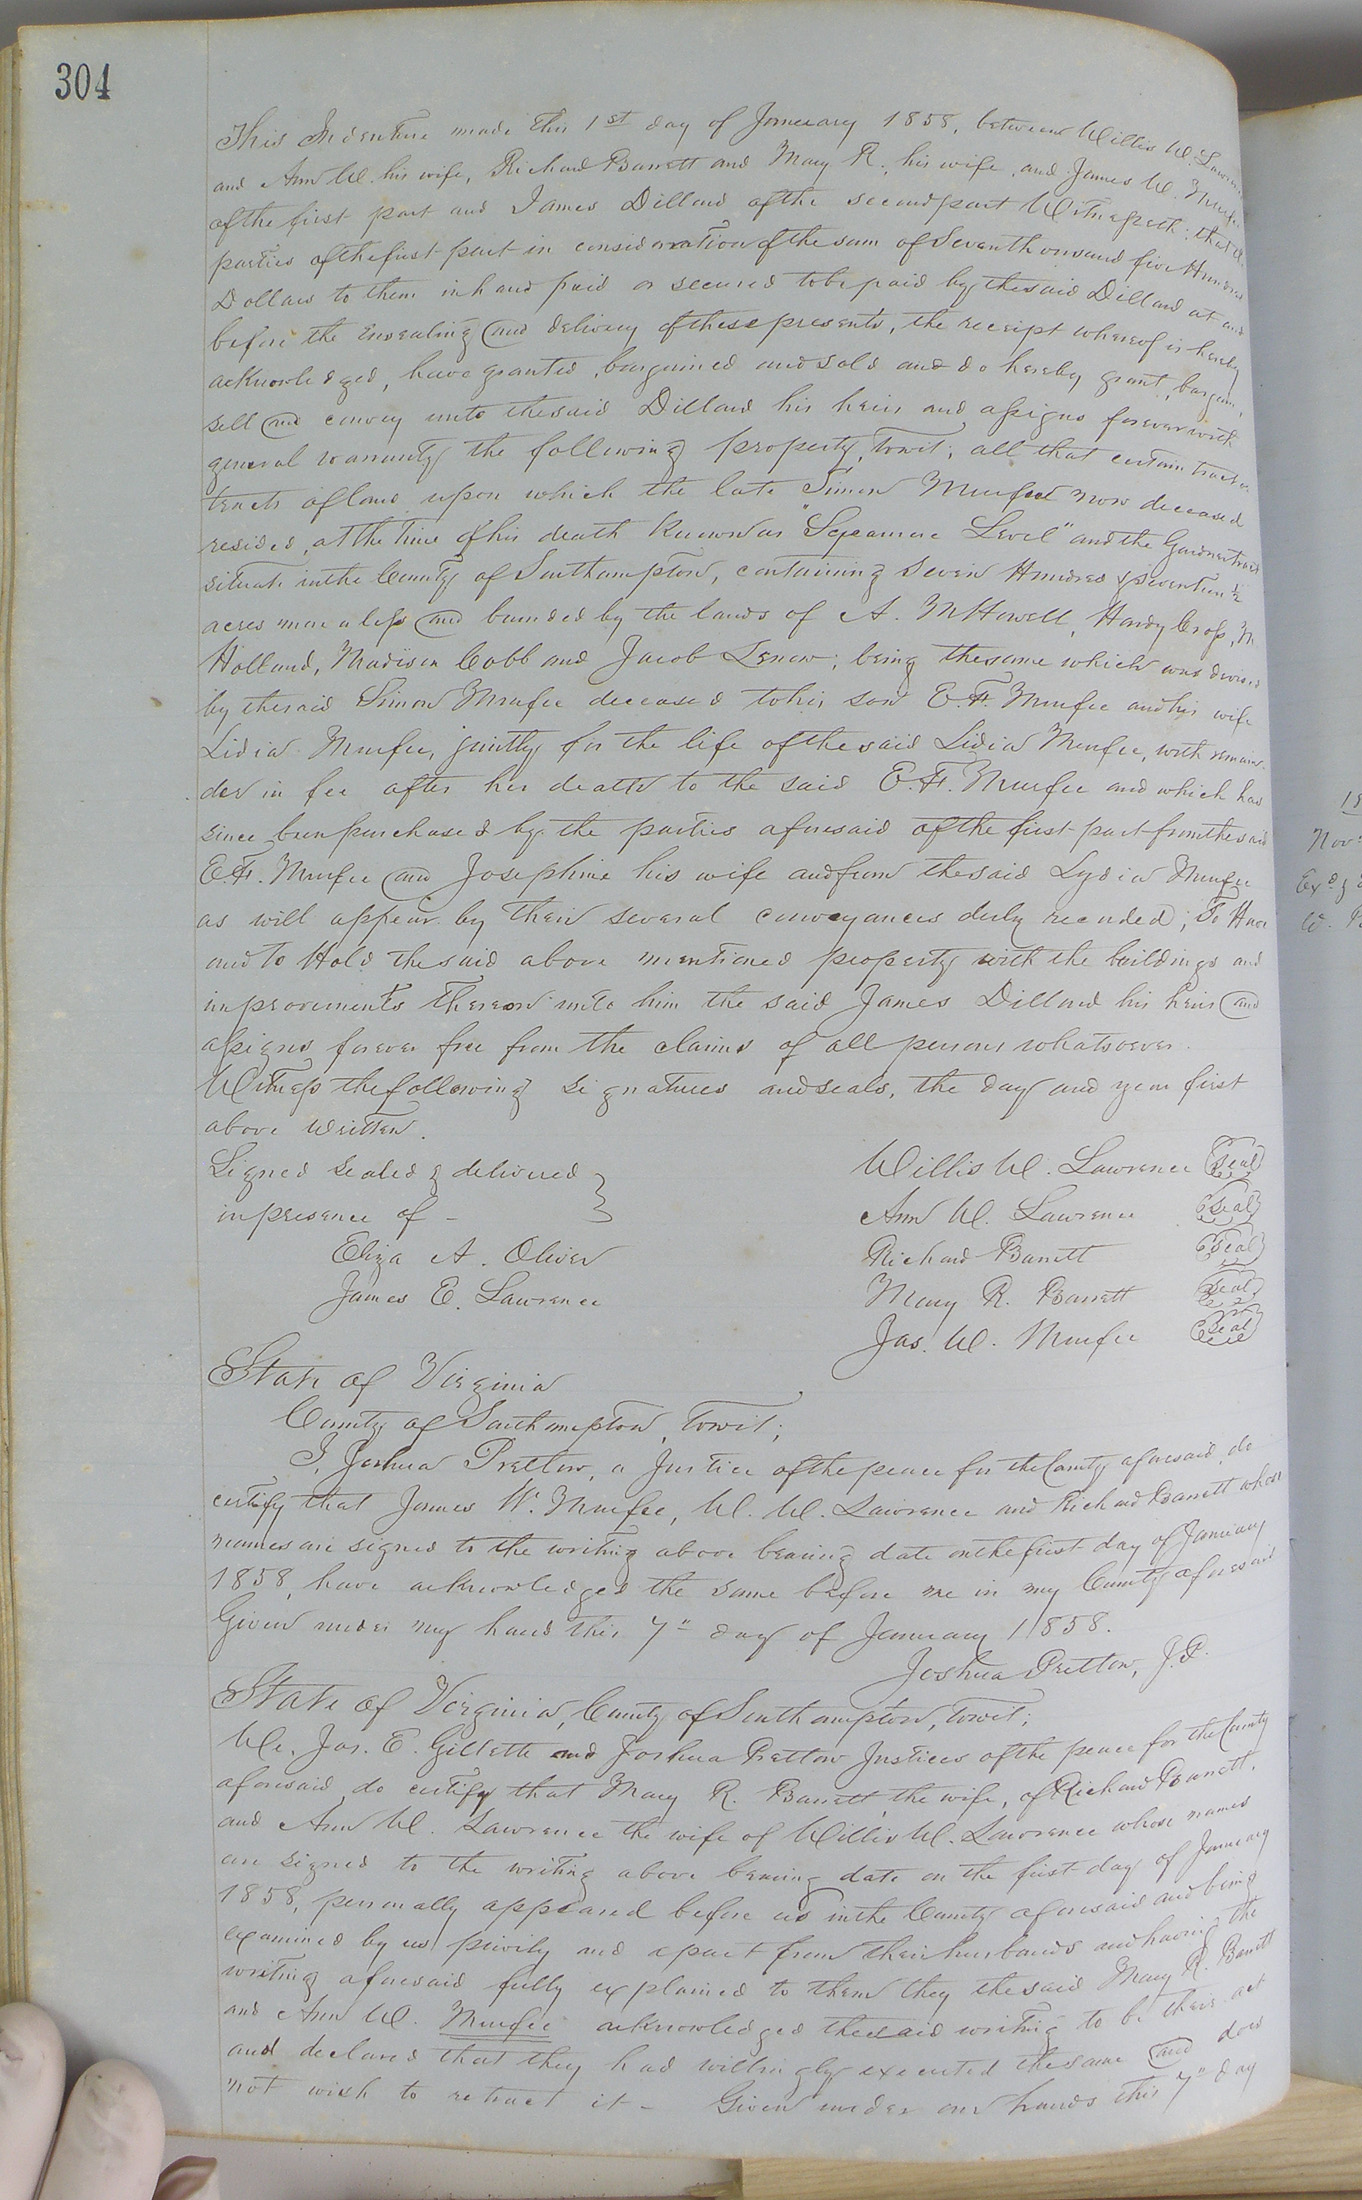 304
This Indenture made this 1st day of January 1858, between Willis W. Lawrence
and Ann W. his wife, Richard Barrett and Mary R., his wife, and James W. Murfee
of the first part and James Dillard of the second part Witnesseth: that the
parties of the first part in consideration of the sum of Seven thousand five Hundred
Dollars to them in hand paid or secured to be paid by the said Dillard at and
before the ensealing and delivery of these presents, the receipt whereof is hereby
acknowledged, have granted, bargained and sold and do hereby grant, bargain,
sell and convey unto the said Dillard his heirs and assigns forever with
general warranty the following property, towit; all that certain tract or
tracts of land upon which the late Simon Murfee now deceased
resided, at the time of his death known as "Sycamore Level" and the Gardner tract
situate in the County of Southampton, containing Seven Hundred & seventeen ½
acres more or less and bounded by the lands of A. M Howell, Hardy Cross, M
Holland, Madison Cobb and Jacob Lenow; being the same which was devised
by the said Simon Murfee deceased to his son E. F. Murfee and his wife
Lidia Murfee, jointly for the life of the said Lidia Murfee, with remain-
der in fee after her death to the said E. F. Murfee and which has
since been purchased by the parties aforesaid of the first part from the said
E. F. Murfee and Josephine his wife and from the said Lydia Murfee
as will appear by their several conveyances duly recorded; To Have
and to Hold the said above mentioned property with the buildings and
improvements thereon unto him the said James Dillard his heirs and
assigns forever free from the claims of all persons whatsoever.
Witness the following signatures and seals, the day and year first
above written.
Signed sealed & delivered
in presence of -
Eliza A. Oliver
James E. Lawrence
Willis W. Lawrence Seal
Ann W. Lawrence Seal
Richard Barrett Seal
Mary R. Barrett Seal
Jas. W. Murfee Seal
State of Virginia
County of Southampton, towit;
I, Joshua Pretlow, a Justice of the peace for the County aforesaid, do
certify that James W. Murfee, W. W. Lawrence and Richard Barrett whose
names are signed to the writing above bearing date on the first day of January
1858, have acknowledged the same before me in my County aforesaid
Given under my hand this 7" day of January 1858.
Joshua Pretlow, J. P.
State of Virginia, County of Southampton, towit;
We, Jas. E. Gillette and Joshua Pretlow Justices of the peace for the County
aforesaid, do certify that Mary R. Barrett, the wife, of Richard Barrett,
and Ann W. Lawrence the wife of Willis W. Lawrence whose names
are signed to the writing above bearing date on the first day of January
1858, personally appeared before us in the County aforesaid and being
examined by us privily and apart from their husbands and having the
writing aforesaid fully explained to them they the said Mary R. Barrett
and Ann W. Murfee acknowledged the said writing to be their act
and declared that they had willingly executed the same and does
not wish to retract it - Given under our hands this 7" day
18
Nov
Exd &
W.